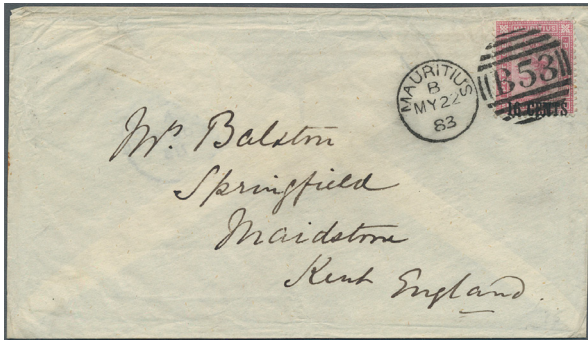 MAURITIUS
B
MY 22
83
B53
Mrs Balston
Springfield
Maidstone
Kent England.